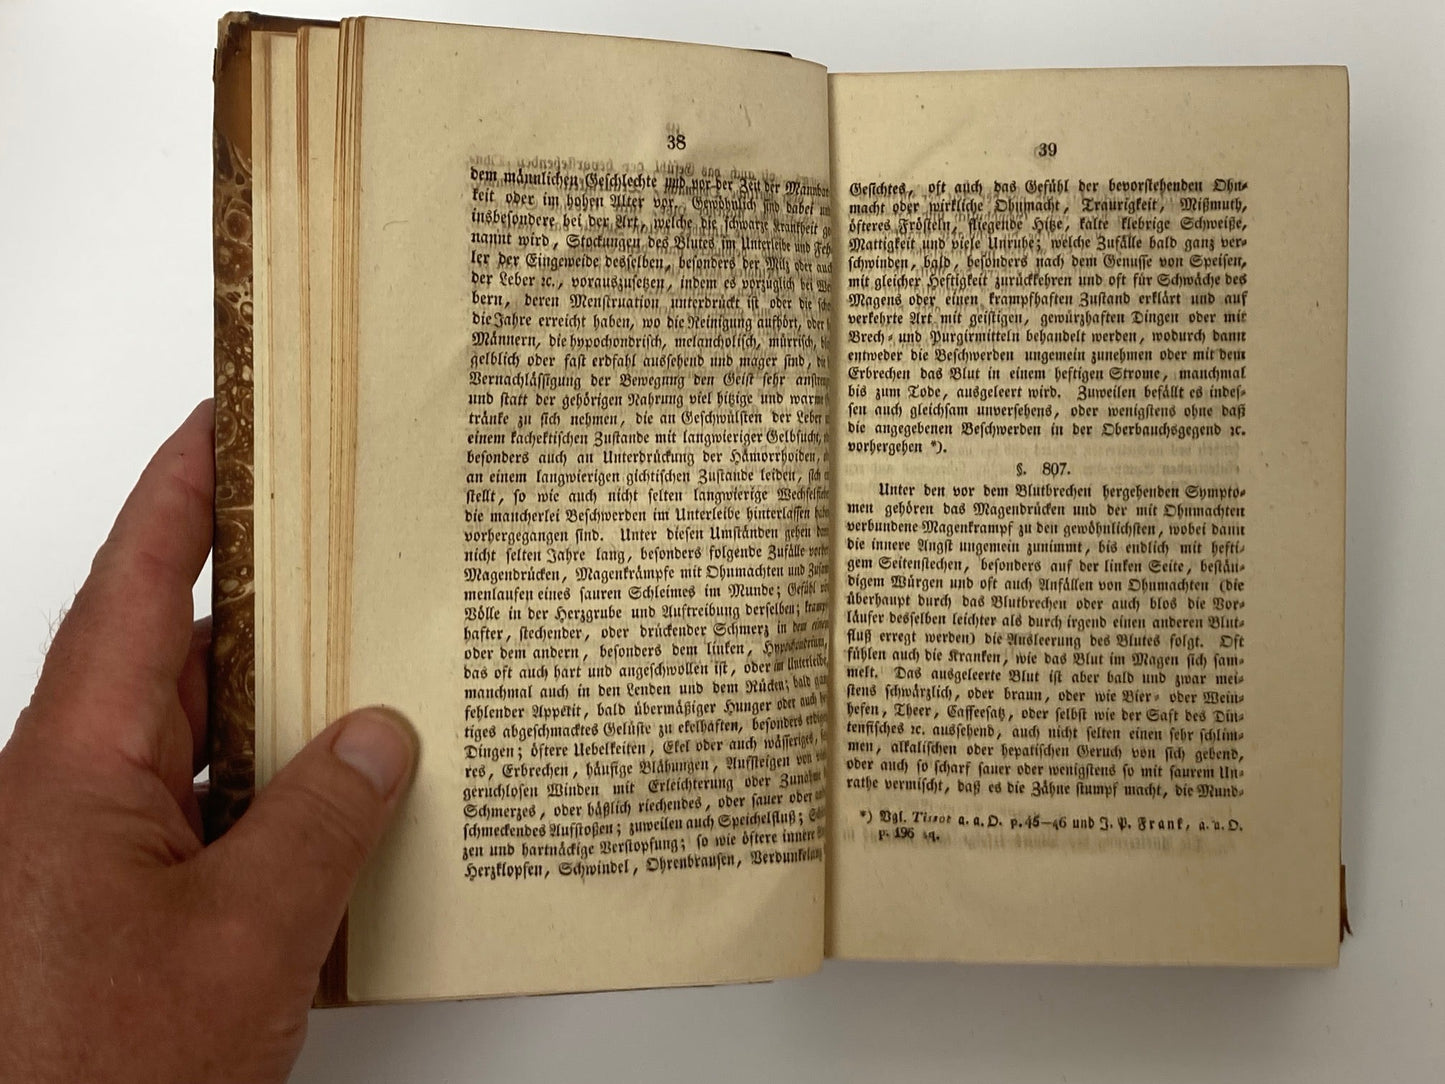 38
dem männlichen Geschlechte und vor der Zeit der Mannbar
keit oder im hohen Alter vor. Gewöhnlich sind dabei und
insbesondere bei der Art, welche die schwarze Krankheit ge
nannt wird, Stockungen des Blutes im Unterleibe und Feh
ler der Eingeweide desselben, besonders der Milz oder auch
der Leber ꝛc., vorauszusetzen, indem es vorzüglich bei We
bern, deren Menstruation unterdrückt ist oder die scho
die Jahre erreicht haben, wo die Reinigung aufhört, oder b
Männern, die hypochondrisch, melancholisch, mürrisch,
gelblich oder fast erdfahl aussehend und mager sind, die
Vernachlässigung der Bewegung den Geist sehr anstreng
und statt der gehörigen Nahrung viel hitzige und warme
tränke zu sich nehmen, die an Geschwülsten der Leber
einem kachektischen Zustande mit langwieriger Gelbsucht,
besonders auch an Unterdrückung der Hämorrhoiden,
an einem langwierigen gichtischen Zustande leiden, sich
stellt, so wie auch nicht selten langwierige Wechselfiebe
die mancherlei Beschwerden im Unterleibe hinterlassen habe
vorhergegangen sind. Unter diesen Umständen gehen dann
nicht selten Jahre lang, besonders folgende Zufälle vorher
Magendrücken, Magenkrämpfe mit Ohnmachten und Zusam
menlaufen eines sauren Schleimes im Munde; Gefühl von
Völle in der Herzgrube und Auftreibung derselben; krampf
hafter, stechender, oder drückender Schmerz in dem einen
oder dem andern, besonders dem linken, Hypochondrium,
das oft auch hart und angeschwollen ist, oder im Unterleibe,
manchmal auch in den Lenden und dem Rücken; bald gan
fehlender Appetit, bald übermäßiger Hunger oder auch
tiges abgeschmacktes Gelüste zu ekelhaften, besonders erdigen
Dingen; öftere Uebelkeiten, Ekel oder auch wässeriges,
res, Erbrechen, häufige Blähungen, Aufsteigen von
geruchlosen Winden mit Erleichterung oder Zunahme
Schmerzes, oder häßlich riechendes, oder sauer oder
schmeckendes Aufstoßen; zuweilen auch Speichelfluß;
zen und hartnäckige Verstopfung; so wie öftere innere
Herzklopfen, Schwindel, Ohrenbrausen, Verdunkelung
39
Gesichtes, oft auch das Gefühl der bevorstehenden Ohn-
macht oder wirkliche Ohnmacht, Traurigkeit, Mißmuth,
öfteres Frösteln, fliegende Hitze, kalte klebrige Schweiße,
Mattigkeit und viele Unruhe; welche Zufälle bald ganz ver-
schwinden, bald, besonders nach dem Genusse von Speisen,
mit gleicher Heftigkeit zurückkehren und oft für Schwäche des
Magens oder einen krampfhaften Zustand erklärt und auf
verkehrte Art mit geistigen, gewürzhaften Dingen oder mit
Brech- und Purgirmitteln behandelt werden, wodurch dann
entweder die Beschwerden ungemein zunehmen oder mit dem
Erbrechen das Blut in einem heftigen Strome, manchmal
bis zum Tode, ausgeleert wird. Zuweilen befällt es indes-
sen auch gleichsam unversehens, oder wenigstens ohne daß
die angegebenen Beschwerden in der Oberbauchsgegend ꝛc.
vorhergehen *).
§. 807.
Unter den vor dem Blutbrechen hergehenden Sympto-
men gehören das Magendrücken und der mit Ohnmachten
verbundene Magenkrampf zu den gewöhnlichsten, wobei dann
die innere Angst ungemein zunimmt, bis endlich mit hefti-
gem Seitenstechen, besonders auf der linken Seite, bestän-
digem Würgen und oft auch Anfällen von Ohnmachten (die
überhaupt durch das Blutbrechen oder auch blos die Vor-
läufer desselben leichter als durch irgend einen anderen Blut-
fluß erregt werden) die Ausleerung des Blutes folgt. Oft
fühlen auch die Kranken, wie das Blut im Magen sich sam-
melt. Das ausgeleerte Blut ist aber bald und zwar mei-
stens schwärzlich, oder braun, oder wie Bier- oder Wein-
hefen, Theer, Caffeesatz, oder selbst wie der Saft des Din-
tenfisches ꝛc. aussehend, auch nicht selten einen sehr schlim-
men, alkalischen oder hepatischen Geruch von sich gebend,
oder auch so scharf sauer oder wenigstens so mit saurem Un-
rathe vermischt, daß es die Zähne stumpf macht, die Mund-
*) Vgl. Tissot a. a. O. p. 45—46 und J. P. Frank, a. a. O.
p. 196 sq.